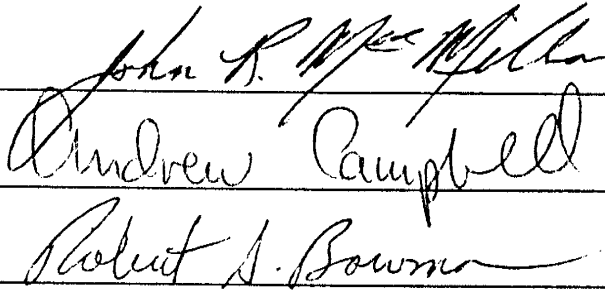 John R. McMillan
Andrew Campbell
Robert S. Bowman